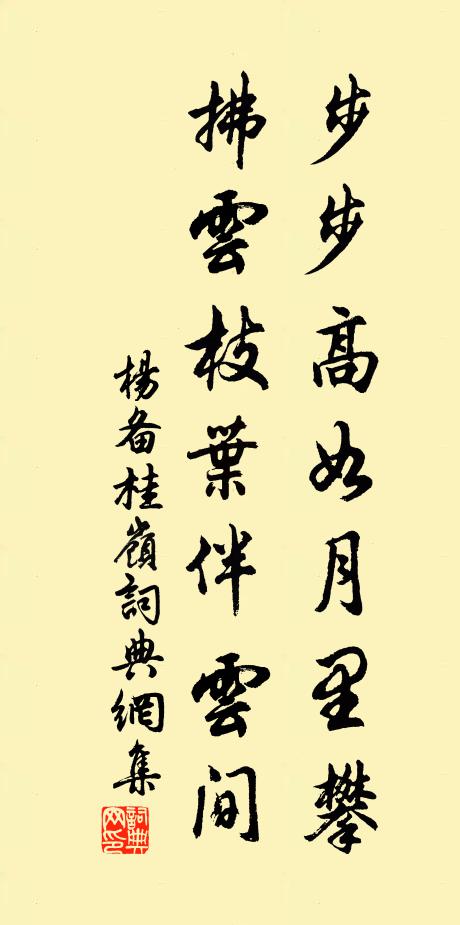 步步高如月里攀
拂雲枝葉伴雲間
楊备桂嶺詞典網集
詞典网印